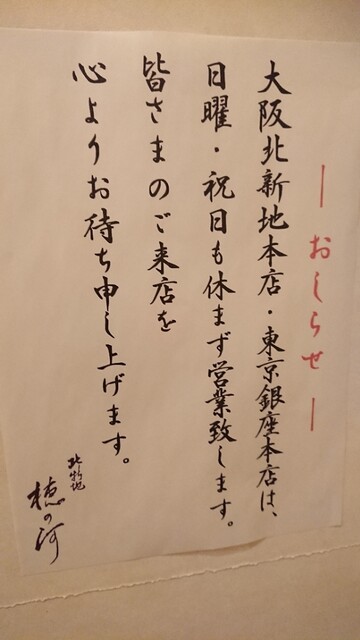 ― おしらせ ―
大阪北新地本店・東京銀座本店は、
日曜・祝日も休まず営業致します。
皆さまのご来店を
心よりお待ち申し上げます。
北新地
穂の河